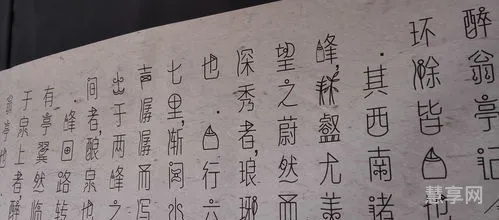 醉翁亭记
环滁皆山也
·其西南诸
峰,林壑尤美
望之蔚然而
深秀者,琅琊
也·山行六
七里,渐闻水
声潺潺而泻
出于两峰之
间者,酿泉也
·峰回路转
有亭翼然临
于泉上者醉
翁亭也
慧享网